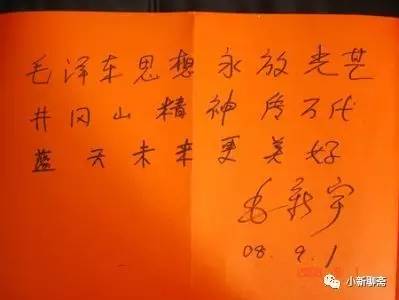 毛泽东思想永放光芒
井冈山精神传万代
蓝天未来更美好
毛新宇
08.9.1
小新聊斋